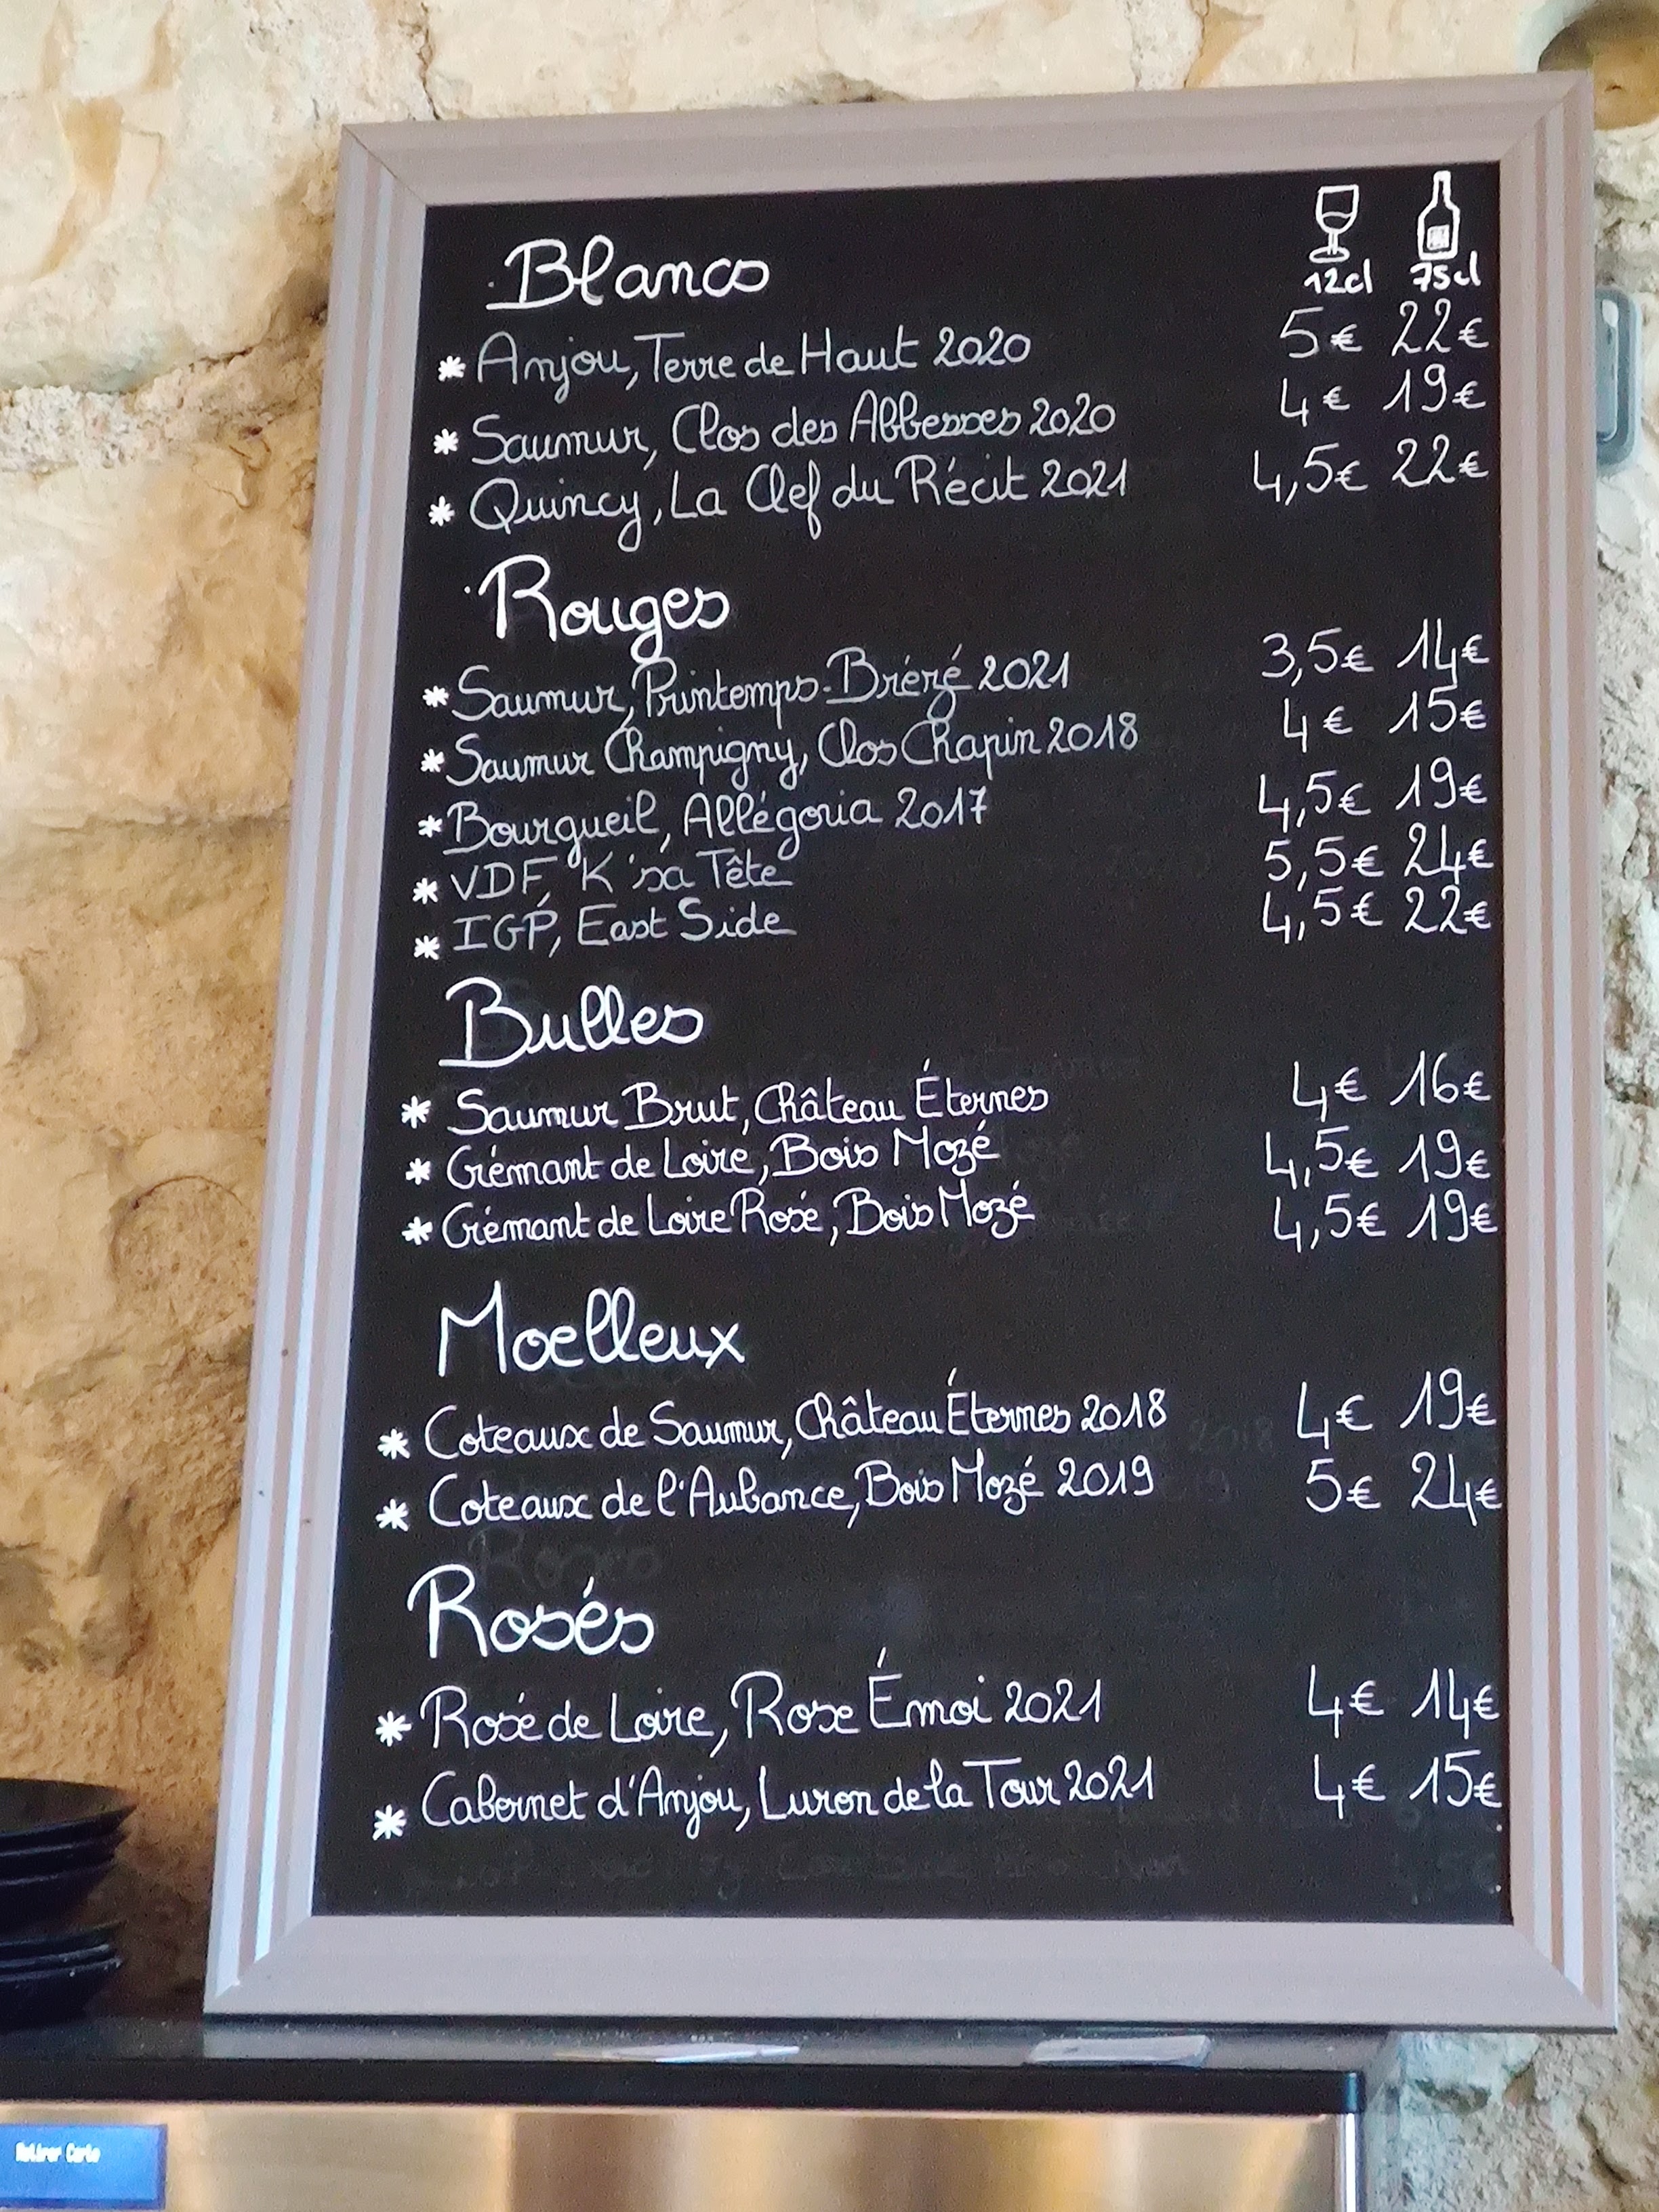 12cl 75cl
Blancs
* Anjou, Terre de Haut 2020 5€ 22€
* Saumur, Clos des Abbesses 2020 4€ 19€
* Quincy, La Clef du Récit 2021 4,5€ 22€
Rouges
* Saumur, Printemps-Brézé 2021 3,5€ 14€
* Saumur Champigny, Clos Chapin 2018 4€ 15€
* Bourgueil, Allégoria 2017 4,5€ 19€
* VDF, K'sa Tête 5,5€ 24€
* IGP, East Side 4,5€ 22€
Bulles
* Saumur Brut, Château Éternes 4€ 16€
* Crémant de Loire, Bois Mozé 4,5€ 19€
* Crémant de Loire Rosé, Bois Mozé 4,5€ 19€
Moelleux
* Coteaux de Saumur, Château Éternes 2018 4€ 19€
* Coteaux de l'Aubance, Bois Mozé 2019 5€ 24€
Rosés
* Rosé de Loire, Rose Émoi 2021 4€ 14€
* Cabernet d'Anjou, Luron de la Tour 2021 4€ 15€